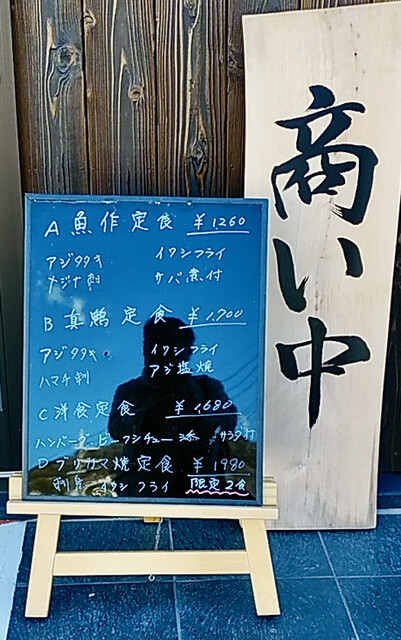 A 魚作定食 ¥1260
アジタタキ イワシフライ
メジナ刺 サバ煮付
B 真鶴定食 ¥1,700
アジタタキ イワシフライ
ハマチ刺 アジ塩焼
C 洋食定食 ¥1,680
ハンバーグ ビーフシチュー 添 サラダ付
D ブリカマ焼定食 ¥1980
刺身 イワシフライ 限定2食
商い中